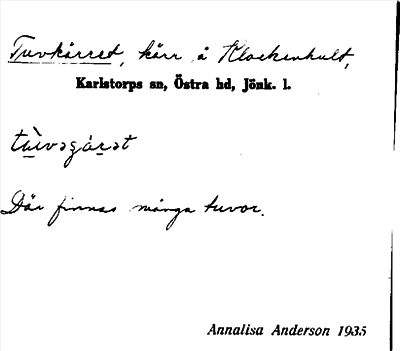 Tuvkärret, kärr å Klockenhult,
Karlstorps sn, Östra hd, Jönk. l.
Där finnas många tuvor.
Annalisa Anderson 1935